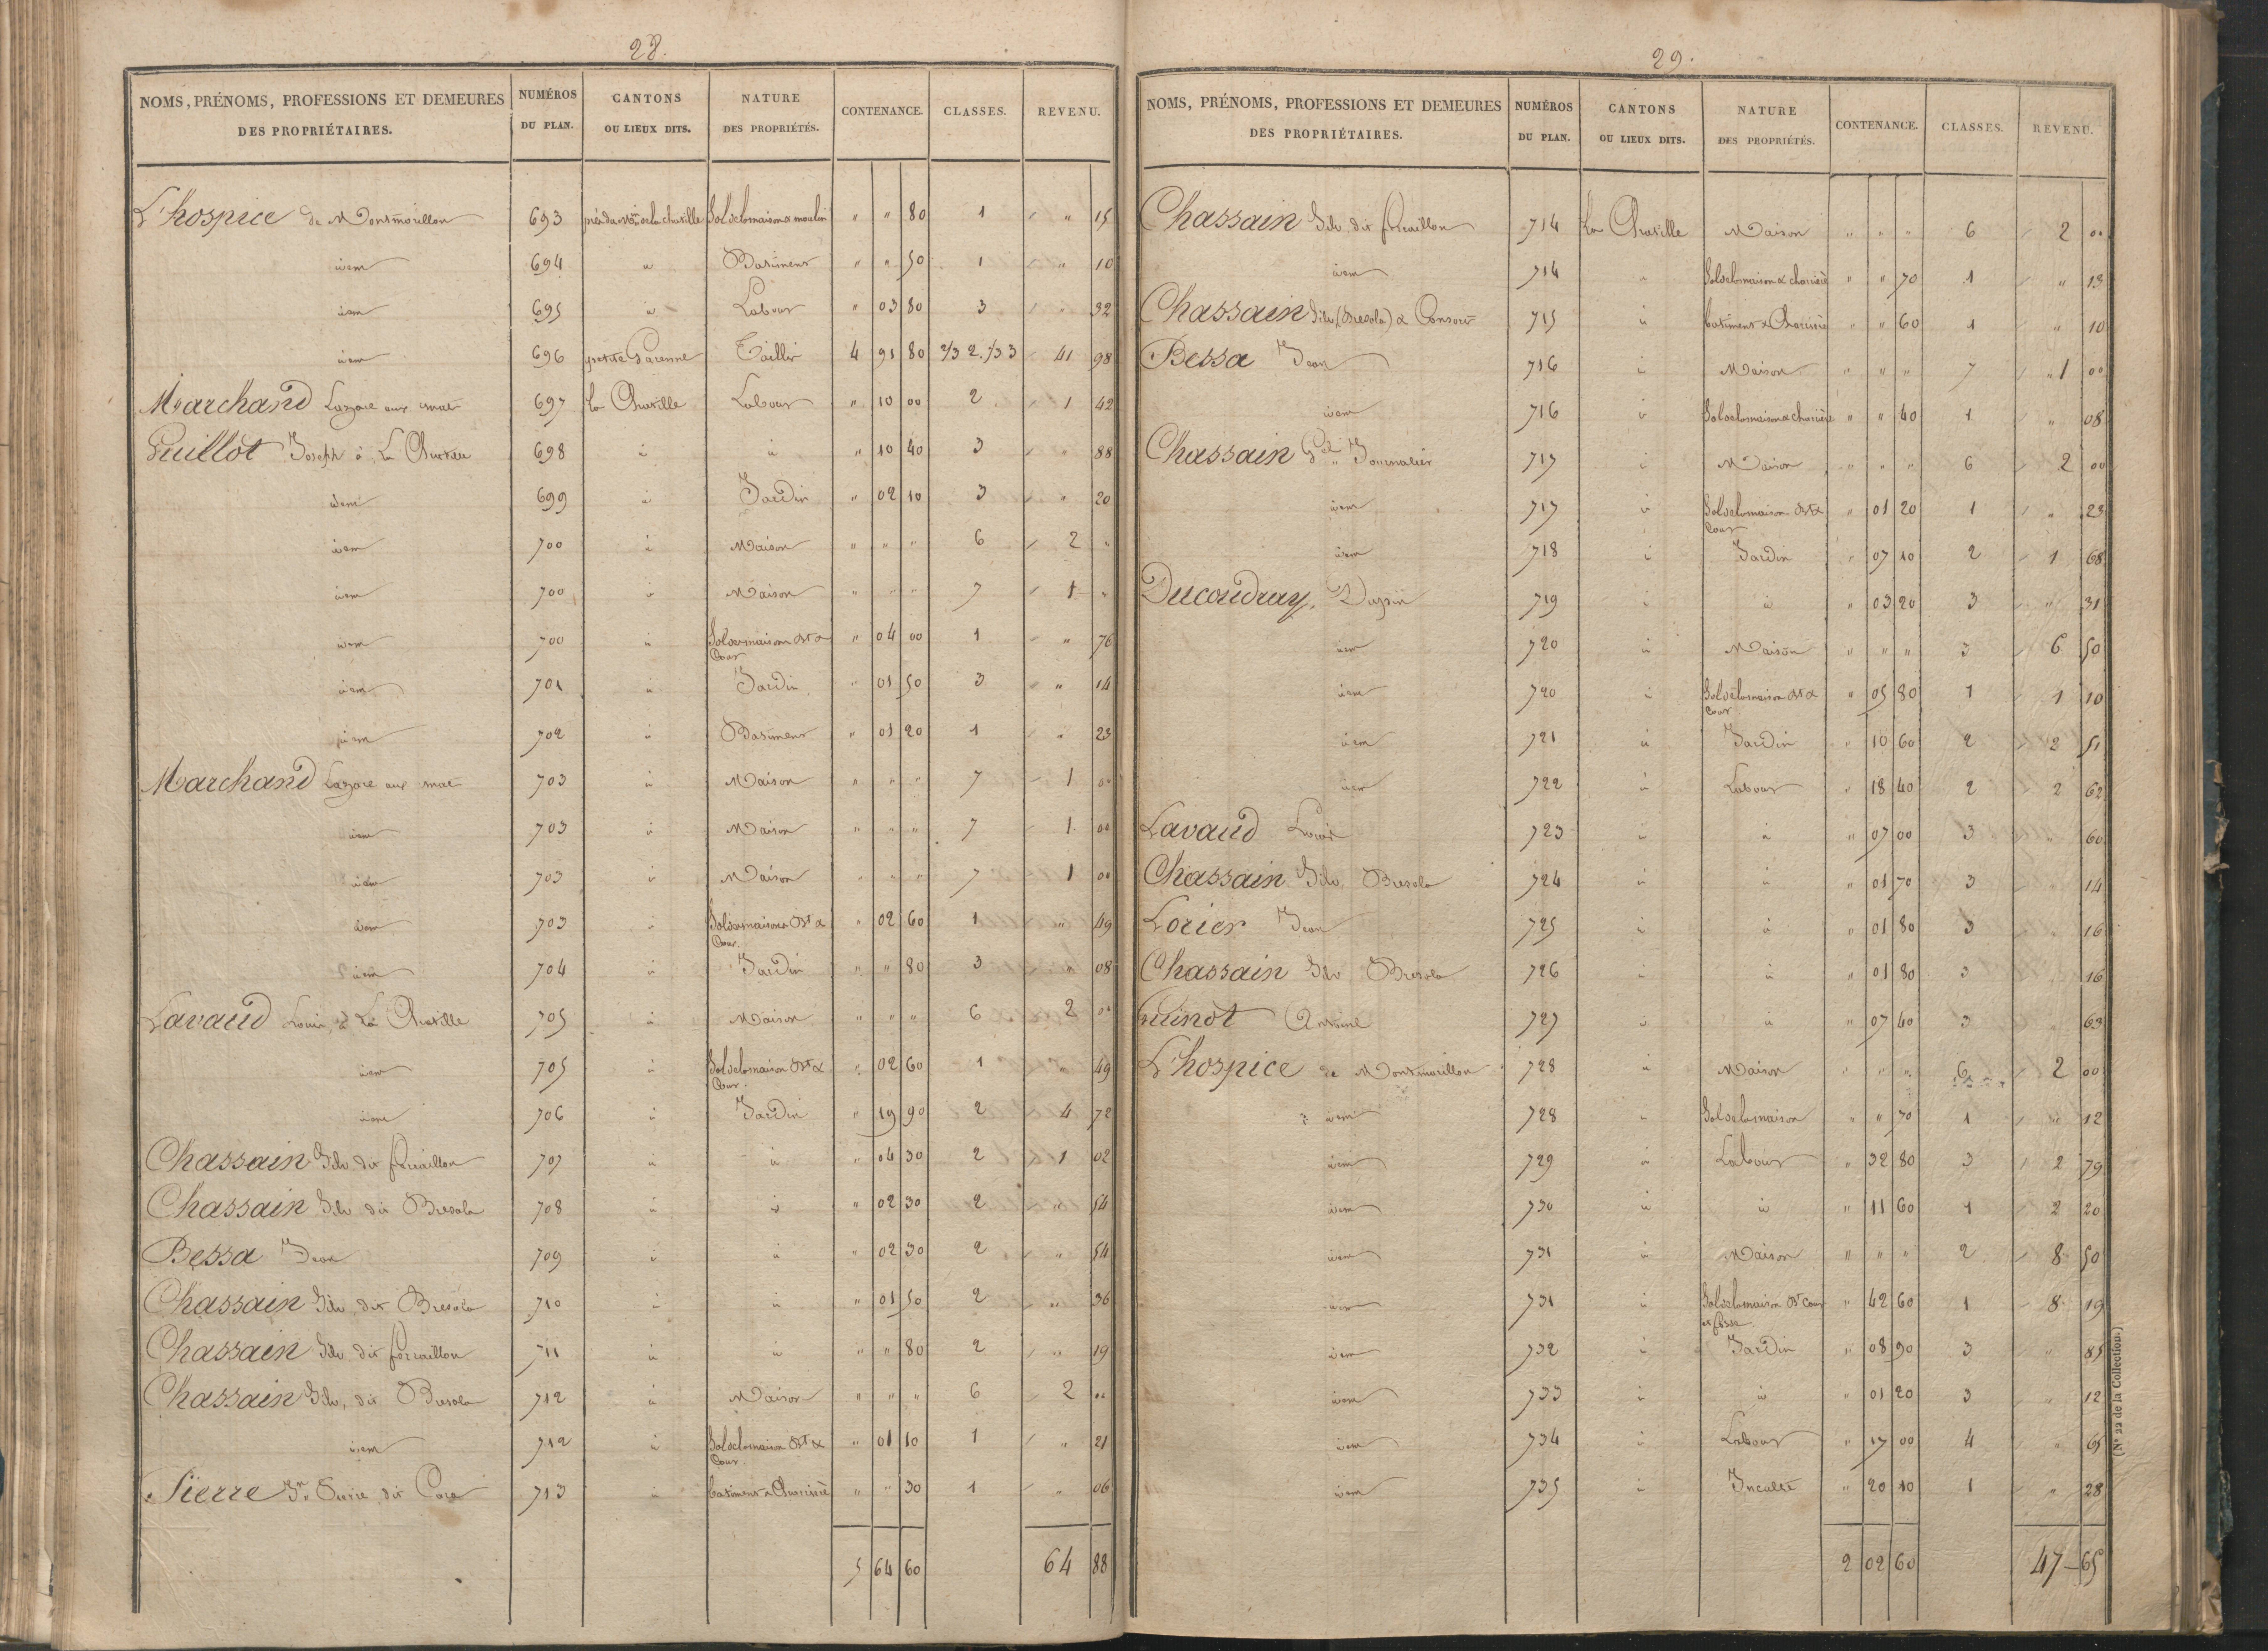 28.
NOMS, PRÉNOMS, PROFESSIONS ET DEMEURES DES PROPRIÉTAIRES. | NUMÉROS DU PLAN. | CANTONS OU LIEUX DITS. | NATURE DES PROPRIÉTÉS. | CONTENANCE. | CLASSES. | REVENU.
L'hospice de Montmorillon 693 Sol de la maison & moulin " " 80 1 " 15
idem 694 id Batiment " " 50 1 " 10
idem 695 id Labour " 03 80 3 " 32
idem 696 petite Garenne Taillis 4 91 80 2/3 2. 1/3 3 41 98
Marchand Lazare aux mat 697 La Chatille Labour " 10 00 2 1 42
Guillot Joseph à La 698 id id " 10 40 3 " 88
idem 699 id Jardin " 02 10 3 " 20
idem 700 id Maison " " " 6 2 "
idem 700 id Maison " " " 7 1 "
idem 700 id Sol des maisons Bt & Cour " 04 00 1 " 76
idem 701 id Jardin " 01 50 3 " 14
idem 702 id Batiment " 01 20 1 " 23
Marchand Lazare aux mat 703 id Maison " " " 7 1 00
idem 703 id Maison " " " 7 1 00
idem 703 id Maison " " " 7 1 00
idem 703 id Sol des maisons Bt & Cour. " 02 60 1 " 49
idem 704 id Jardin " " 80 3 " 08
Lavaud Louis, à La Chatille 705 id Maison " " " 6 2 00
idem 705 id Sol de la maison Bt & Cour. " 02 60 1 " 49
idem 706 id Jardin " 19 90 2 4 72
Chassain Silv dit 707 id id " 04 30 2 1 02
Chassain Silv dit Bresola 708 id id " 02 30 2 " 54
Bessa Jean 709 id id " 02 30 2 " 54
Chassain Silv dit Bresola 710 id id " 01 50 2 " 36
Chassain Silv dit 711 id id " " 80 2 " 19
Chassain Silv, dit Bresola 712 id Maison " " " 6 2 00
idem 712 id Sol de la maison Bt & Cour. " 01 10 1 " 21
Pierre Jn dit 713 id batiment & " " 30 1 " 06
5 64 60 64 88
29.
NOMS, PRÉNOMS, PROFESSIONS ET DEMEURES DES PROPRIÉTAIRES. | NUMÉROS DU PLAN. | CANTONS OU LIEUX DITS. | NATURE DES PROPRIÉTÉS. | CONTENANCE. | CLASSES. | REVENU.
Chassain Silv dit 714 La Chatille Maison " " " 6 2 00
idem 714 " Sol de la maison & " " 70 1 " 13
Chassain Silv (Bresola) & Consorts 715 id batiment & " " 60 1 " 10
Bessa Jean 716 id Maison " " " 7 1 00
idem 716 id Sol de la maison & " " 40 1 " 08
Chassain Journalier 717 id Maison " " " 6 2 00
idem 717 id Sol de la maison Bt & Cour " 01 20 1 " 23
idem 718 id Jardin " 07 10 2 1 68
Ducoudray, Dupin 719 id id " 03 20 3 " 31
idem 720 id Maison " " " 3 6 50
idem 720 id Sol de la maison Bt & Cour " 05 80 1 1 10
idem 721 id Jardin " 10 60 2 2 51
idem 722 id Labour " 18 40 2 2 62
Lavaud Louis 723 id id " 07 00 3 " 60
Chassain Silv, Bresola 724 id id " 01 70 3 " 14
Lorier Jean 725 id id " 01 80 3 " 16
Chassain Silv Bresola 726 id id " 01 80 3 " 16
Guinot Antoine 727 id id " 07 40 3 " 63
L'hospice de Montmorillon 728 id Maison " " " 6 2 00
idem 728 " Sol de la maison " " 70 1 " 12
idem 729 id Labour " 32 80 3 2 79
idem 730 id id " 11 60 1 2 20
idem 731 id Maison " " " 2 8 50
idem 731 id Sol de la maison Bt Cour et fosse " 42 60 1 8 19
idem 732 id Jardin " 08 90 3 " 85
idem 733 id id " 01 20 3 " 12
idem 734 id Labour " 17 00 4 " 65
idem 735 id Inculte " 20 10 1 " 28
2 02 60 47 65
(N° 22 de la Collection.)